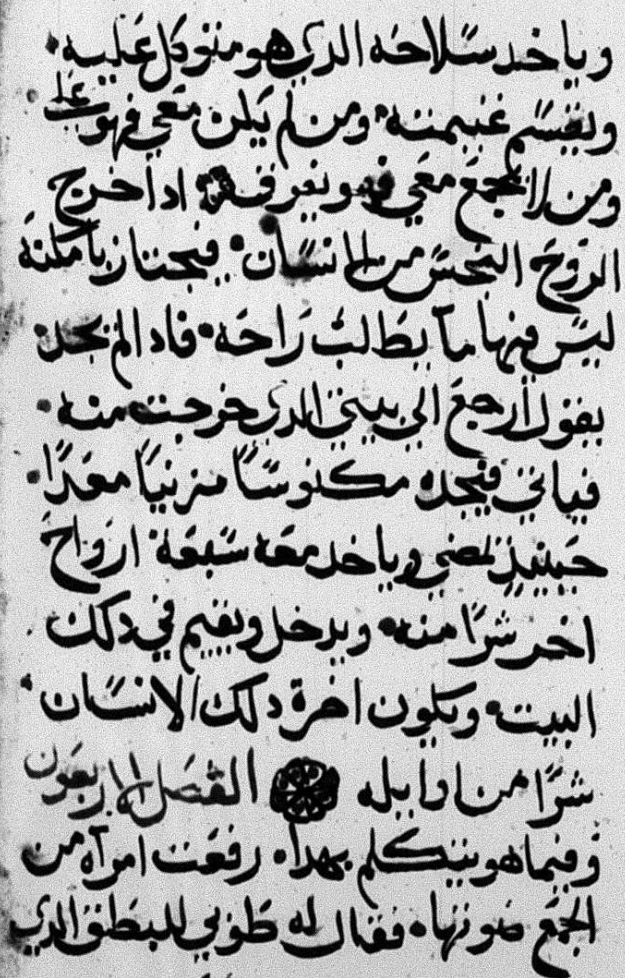 وياخد سلاحه الدي هو متوكل عليه•
ويقسم غنيمته• ومن لم يكن معي فهو علي
ومن لا يجمع معي فهو يفرق ۞ ادا خرج
الروح النجس من الانسان• فيجتاز بامكنة
ليس فيها ما يطالب راحه• فادا لم يجد•
يقول ارجع الي بيتي الدي خرجت منه•
فياتي فيجده مكنوسًا مزينيًا معدًا•
حينيدٍ يمضي وياخد معه سبعة ارواح
اخر شرًا منه• ويدخل ويقيم في دلك
البيت• ويكون اخرة دلك الانسان•
شرًا من اوايله ۞ الفصل الاربعون
وفيما هو يتكلم بهدا• رفعت امرآه من
الجمع صوتها• فقال له طوبي للبطن الدي